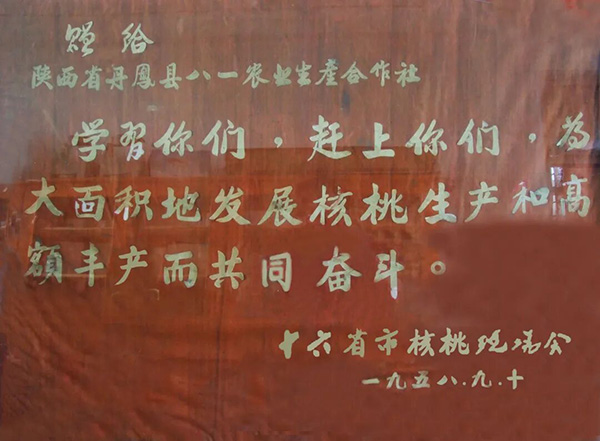 赠给
陕西省丹凤县八一农业生產合作社
学習你们，赶上你们，为
大面积地发展核桃生产和高
额丰产而共同奋斗。
十六省市核桃现场会
一九五八.九.十